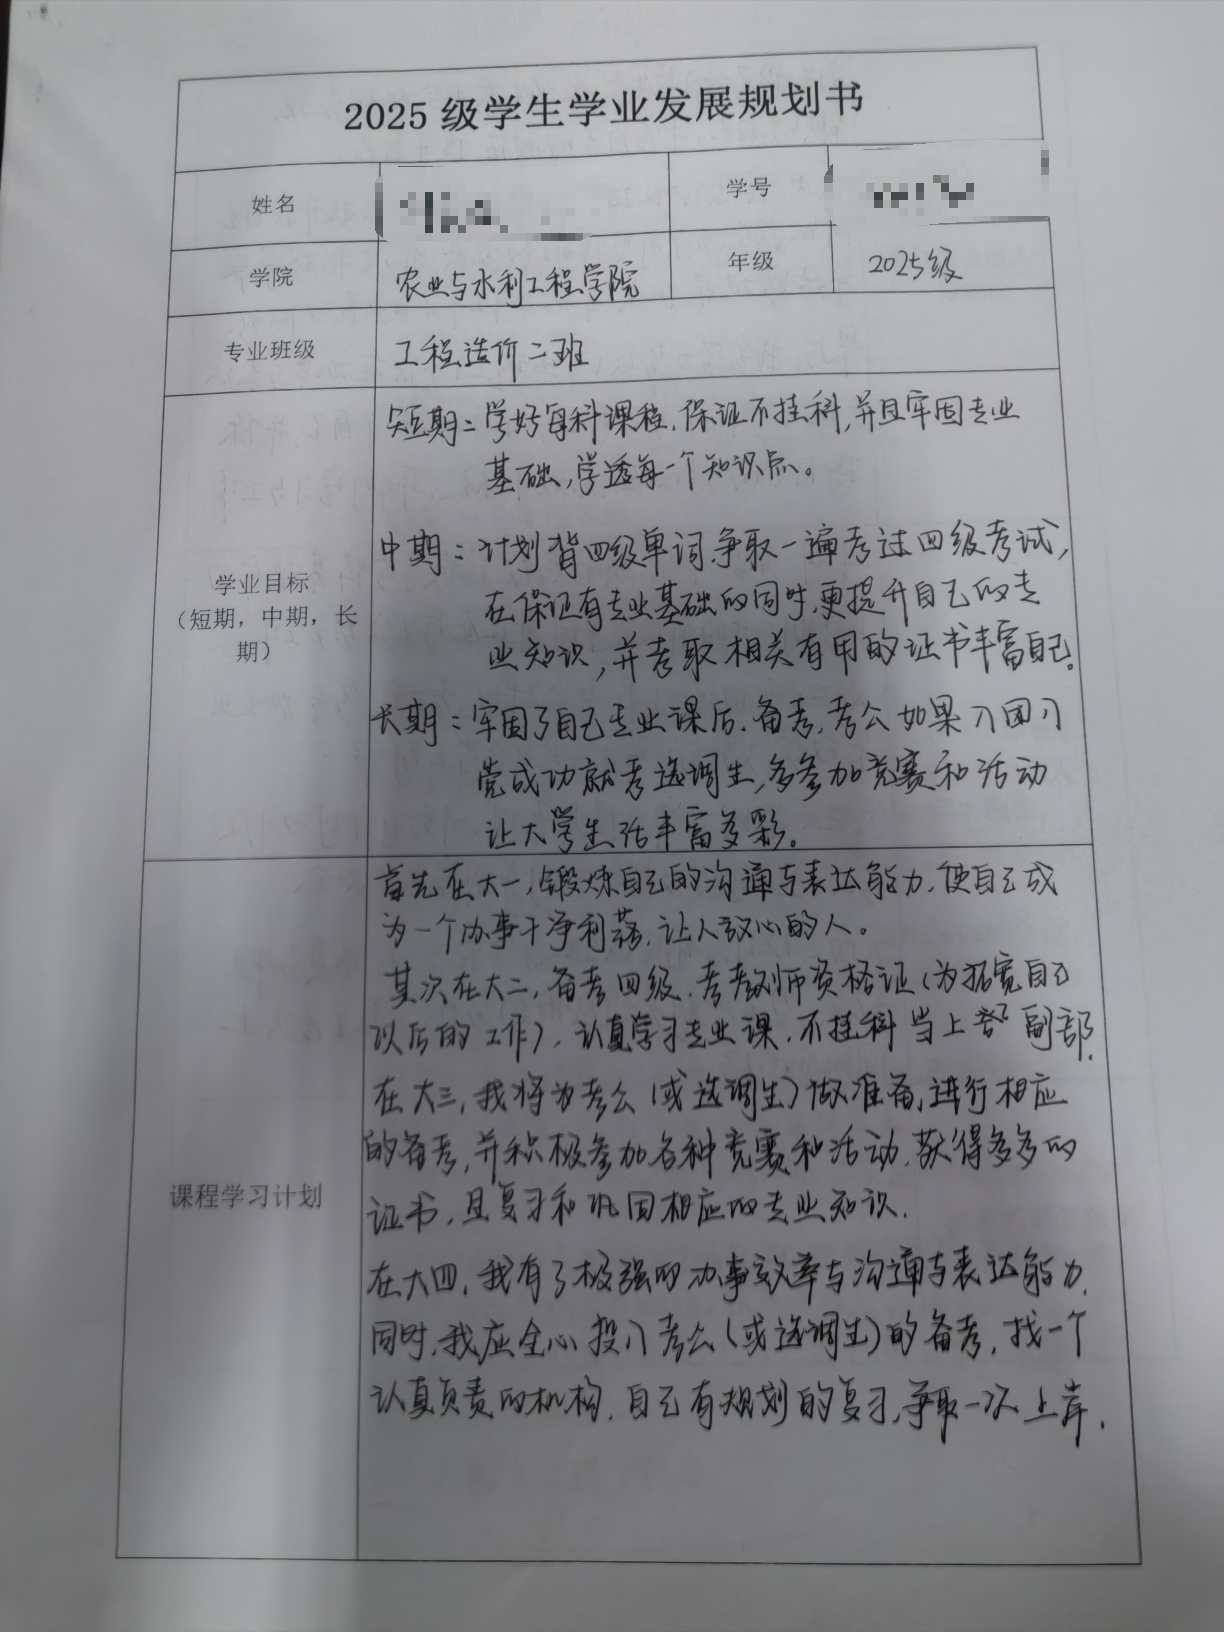 2025 级学生学业发展规划书
姓名
学号
学院
农业与水利工程学院
年级
2025级
专业班级
工程造价二班
学业目标
（短期，中期，长
期）
短期：学好每科课程，保证不挂科，并且牢固专业
基础，学透每一个知识点。
中期：计划背四级单词，争取一遍考过四级考试，
在保证有专业基础的同时，更提升自己的专
业知识，并考取相关有用的证书丰富自己。
长期：牢固了自己专业课后，备考，考公如果入团入
党成功就考选调生，多参加竞赛和活动
让大学生活丰富多彩。
课程学习计划
首先在大一，锻炼自己的沟通与表达能力，使自己成
为一个办事干净利落，让人放心的人。
其次在大二，备考四级，考教师资格证（为拓宽自己
以后的工作），认真学习专业课，不挂科当上 副部.
在大三，我将为考公（或选调生）做准备，进行相应
的备考，并积极参加各种竞赛和活动，获得多多的
证书，且复习和巩固相应的专业知识.
在大四，我有了极强的办事效率与沟通与表达能力，
同时，我应全心投入考公（或选调生）的备考，找一个
认真负责的机构，自己有规划的复习，争取一次上岸.